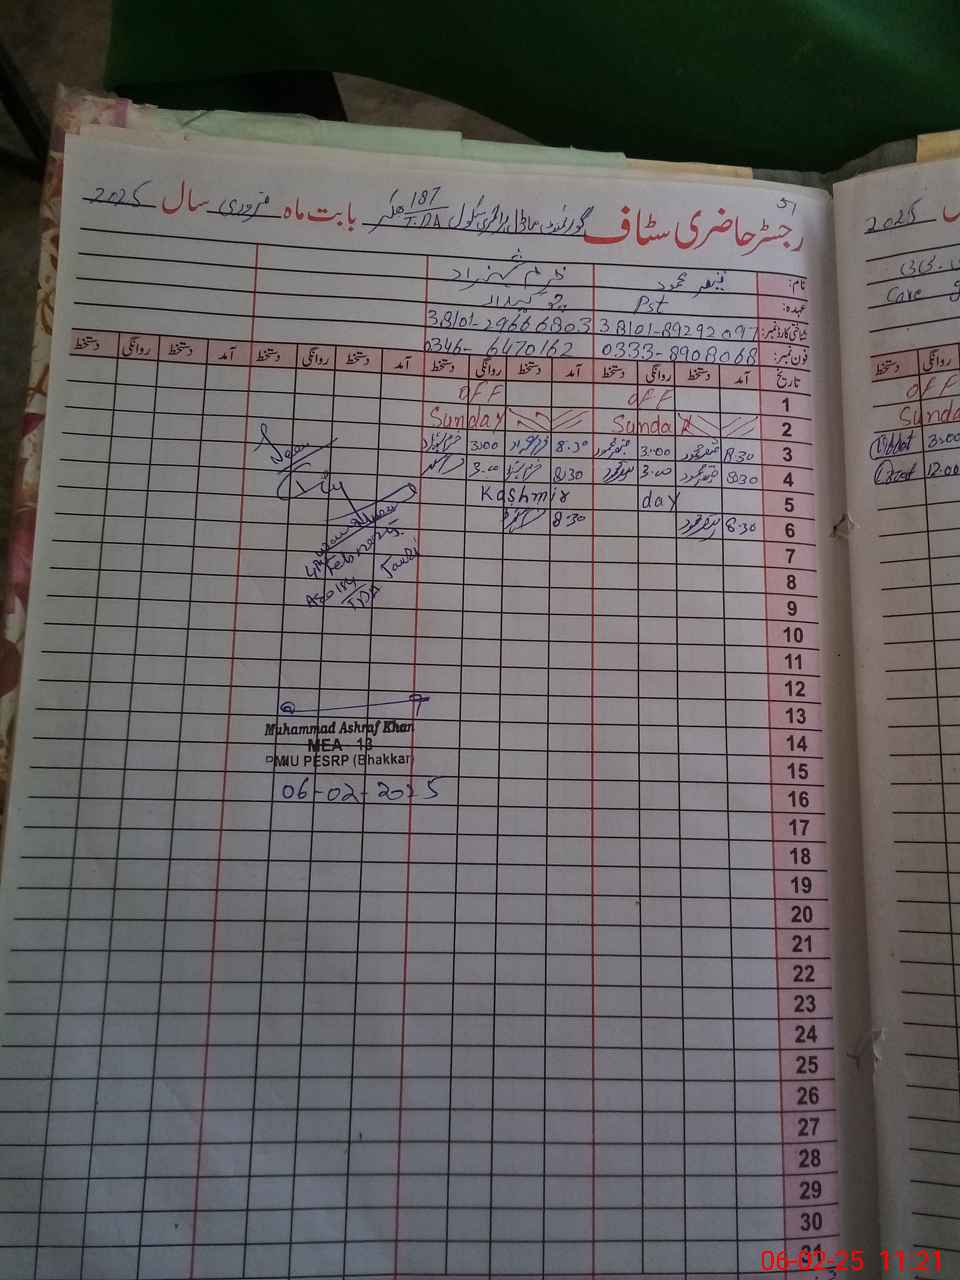 51
رجسٹر حاضری سٹاف گورنمنٹ ماڈل پرائمری سکول 187 T.DA بھکر بابت ماہ فروری سال 2025
نام: محمود خرم شہزاد
عہدہ: Pst چوکیدار
شناختی کارڈ نمبر: 38101-89292097 38101-29666803
فون نمبر: 0333-8908068 0346-6470162
تاریخ آمد دستخط روانگی دستخط آمد دستخط روانگی دستخط آمد دستخط روانگی دستخط آمد دستخط روانگی دستخط
1 OFF OFF
2 Sunday Sunday
3 8.30 3.00 8.30 3.00
4 8.30 3.00 8.30 3.00
5 Kashmir day
6 8.30 8.30
7
8
9
10
11
12
13
14
15
16
17
18
19
20
21
22
23
24
25
26
27
28
29
30
31
Feb 2025
TDA
Muhammad Ashraf Khan
MEA 13
PMIU PESRP (Bhakkar)
06-02-2025
2025
Care
دستخط روانگی
OFF
Sunda
3.00
12.00
06-02-25 11:21